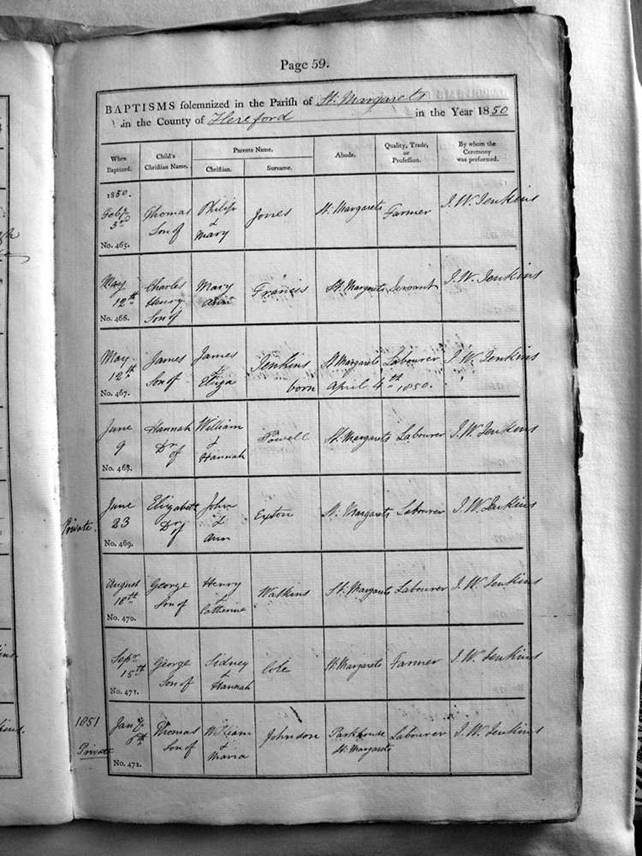 Page 59.
BAPTISMS solemnized in the Parish of St. Margarets
in the County of Hereford in the Year 1850
When Baptized. Child's Christian Name. Parents Name. Abode. Quality, Trade, or Profession. By whom the Ceremony was performed.
Christian. Surname.
1850.
Feby. 3rd Thomas Son of Philip & Mary Jones St. Margarets Farmer J. W. Jenkins
No. 465.
May 12th Charles Henry Son of Mary Ann Francis St. Margarets Servant J. W. Jenkins
No. 466.
May 12th James Son of James & Eliza Jenkins St. Margarets Labourer J. W. Jenkins
born April 4th 1850.
No. 467.
June 9 Hannah Dr of William & Hannah Powell St. Margarets Labourer J. W. Jenkins
No. 468.
Private. June 23 Elizabeth Dr of John & Ann Exton St. Margarets Labourer J. W. Jenkins
No. 469.
August 18th George Son of Henry & Catherine Watkins St. Margarets Labourer J. W. Jenkins
No. 470.
Sepr. 15th George Son of Sidney & Hannah Cole St. Margarets Farmer J. W. Jenkins
No. 471.
1851 Private Jany. Thomas Son of William & Maria Johnson Parkhouse St. Margarets Labourer J. W. Jenkins
No. 472.